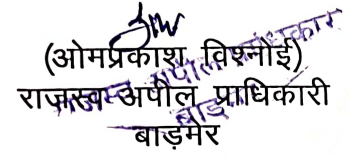 (ओमप्रकाश विश्नोई)
राजस्व अपील प्राधिकारी
बाड़मेर